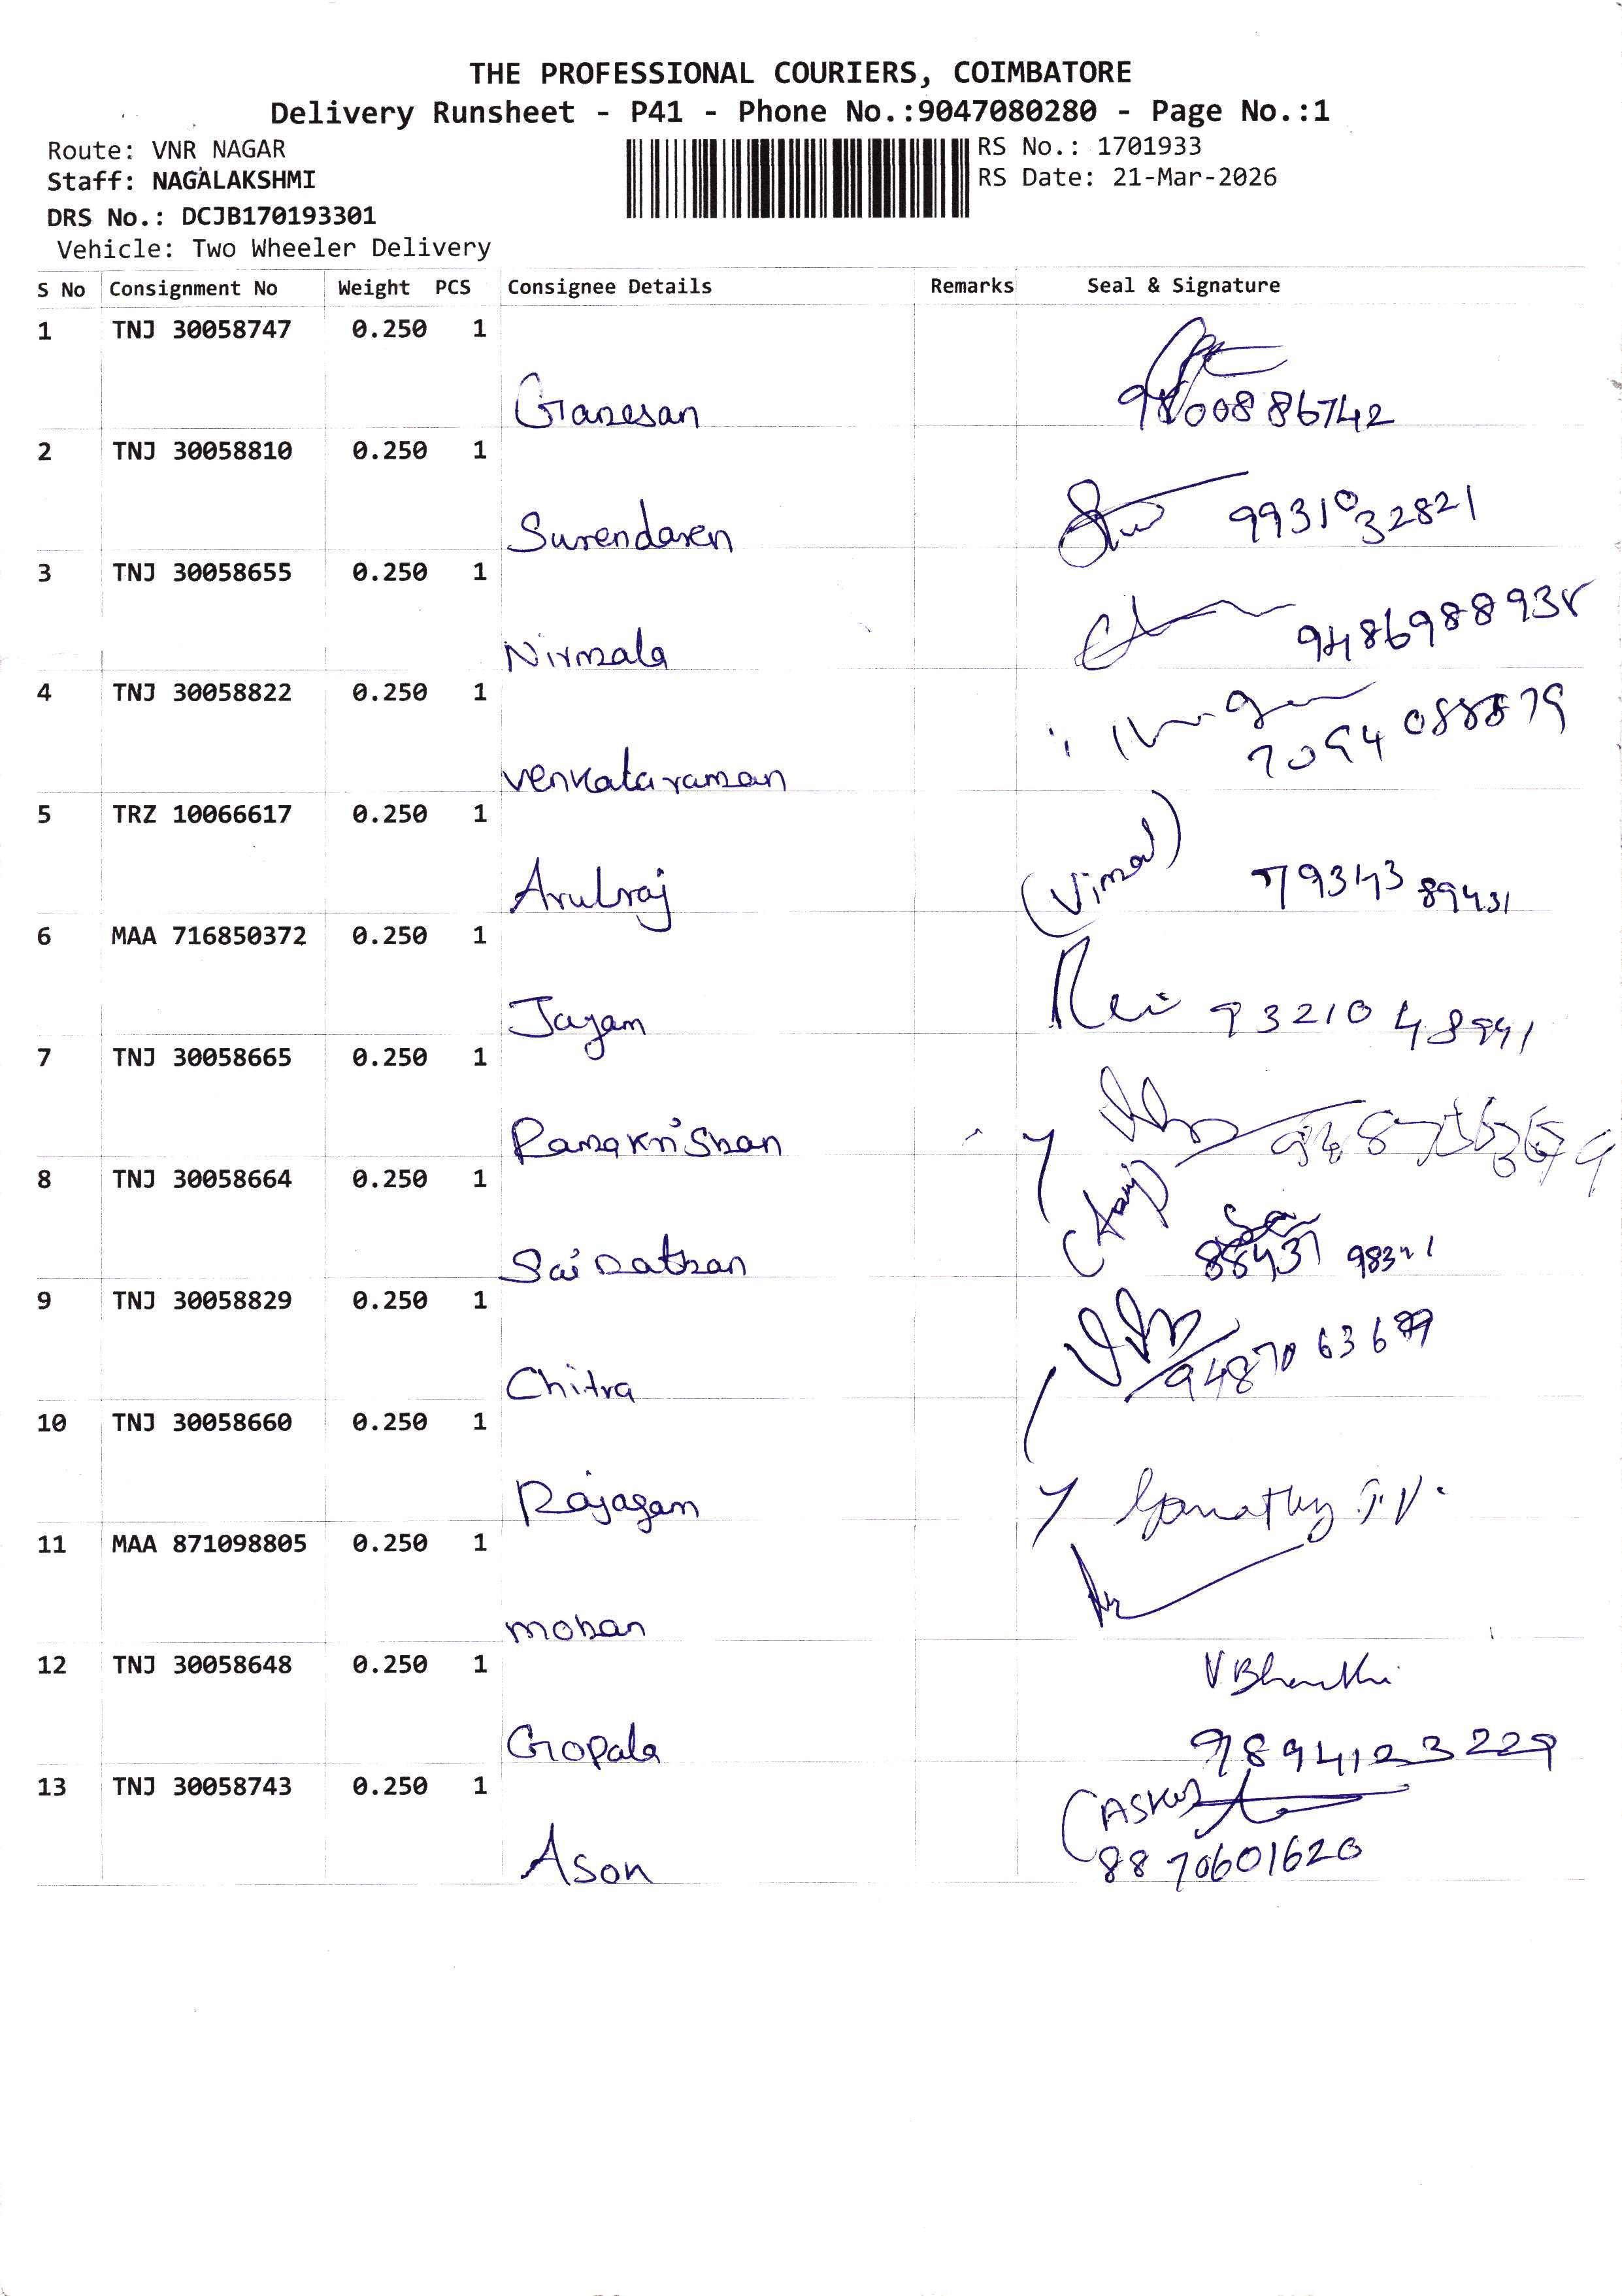 THE PROFESSIONAL COURIERS, COIMBATORE
Delivery Runsheet - P41 - Phone No.:9047080280 - Page No.:1
Route: VNR NAGAR
RS No.: 1701933
Staff: NAGALAKSHMI
RS Date: 21-Mar-2026
DRS No.: DCJB170193301
Vehicle: Two Wheeler Delivery
S No Consignment No Weight PCS Consignee Details Remarks Seal & Signature
1 TNJ 30058747 0.250 1
Ganesan
2 TNJ 30058810 0.250 1
Surendaren
3 TNJ 30058655 0.250 1
Nirmala
4 TNJ 30058822 0.250 1
Venkataraman
5 TRZ 10066617 0.250 1
Arulraj (Vimal)
6 MAA 716850372 0.250 1
Jayam
7 TNJ 30058665 0.250 1
Ramakrishan
8 TNJ 30058664 0.250 1
Sai Nathan
9 TNJ 30058829 0.250 1
Chitra
10 TNJ 30058660 0.250 1
Rajagam
11 MAA 871098805 0.250 1
Mohan
12 TNJ 30058648 0.250 1
Gopala 9894123229
13 TNJ 30058743 0.250 1
Ason 8870601620